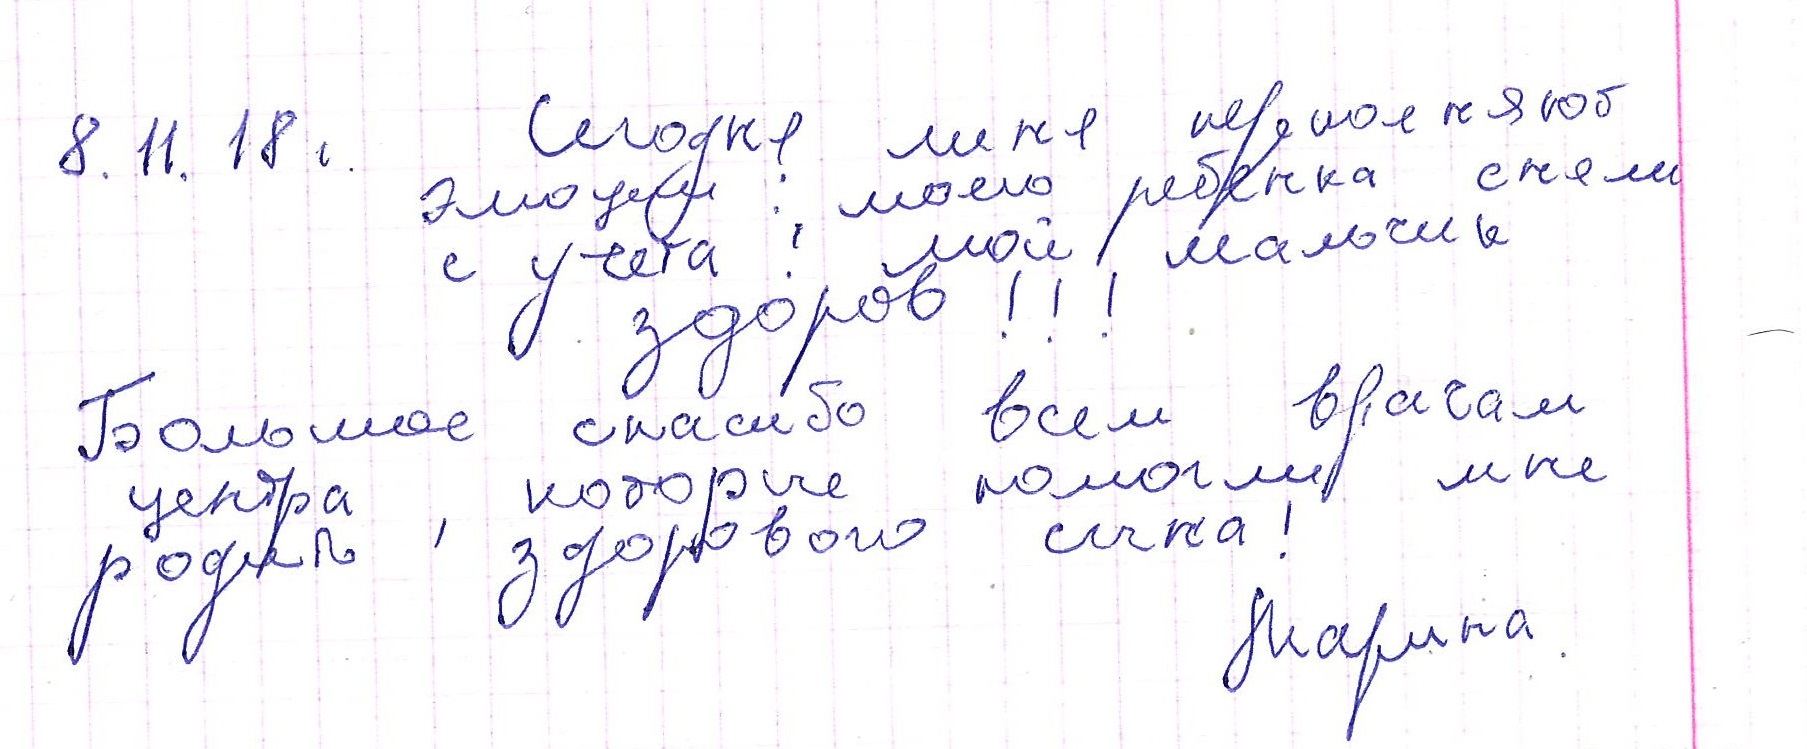 8.11.18г. Сегодня меня переполняют
эмоции: моего ребенка сняли
с учета! мой мальчик
здоров!!!
Большое спасибо всем врачам
центра, которые помогли мне
родить здорового сынка!
Марина.